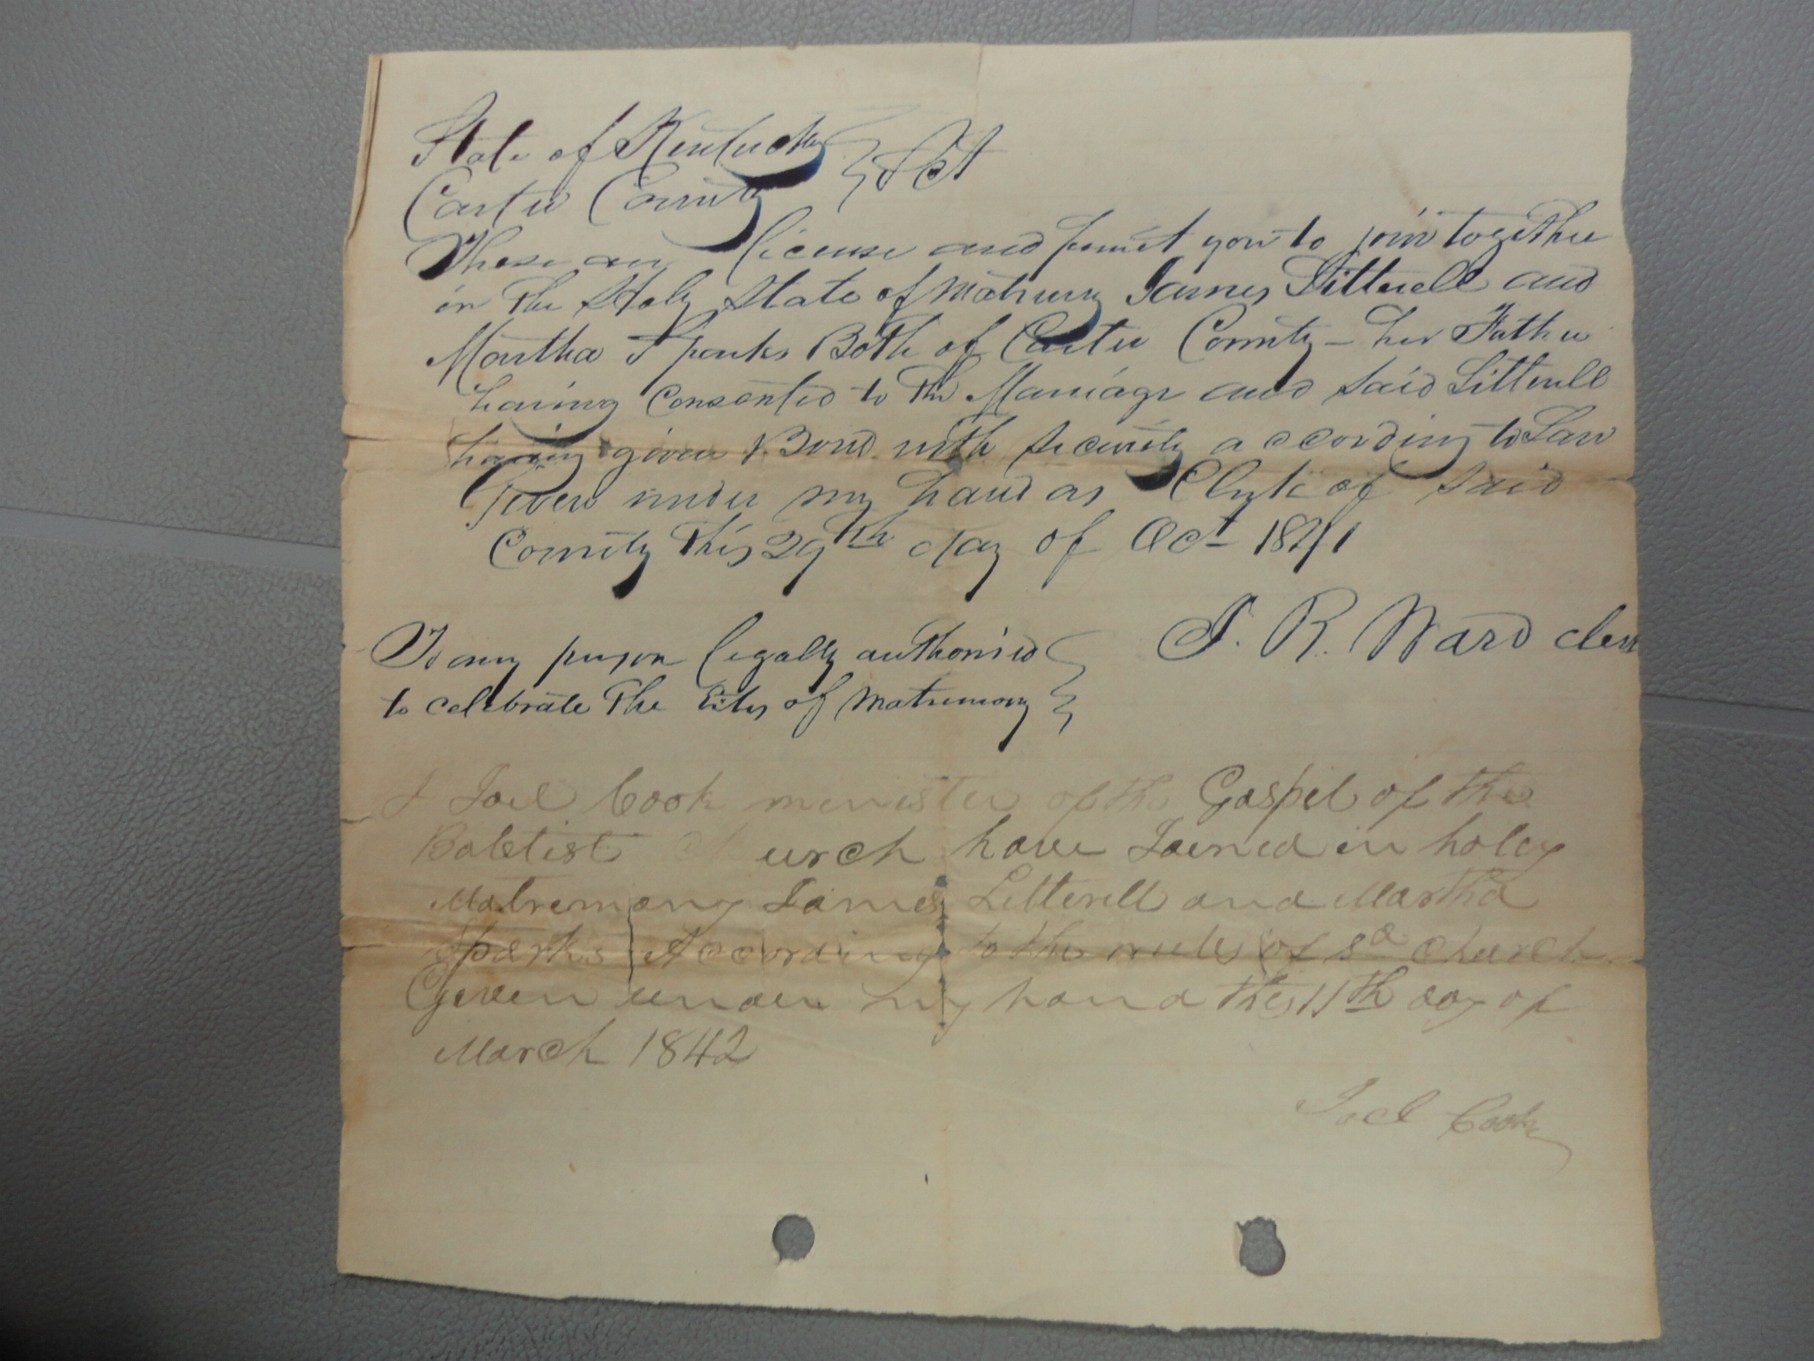 State of Kentucky } Sct
Carter County
These are license and permit you to join together
in the Holy State of Matrimony James Litterell and
Martha Sparks Both of Carter County – her Father
having consented to the Marriage and said Litterell
having given Bond with security according to Law
Given under my hand as Clerk of said
County this 29th day of Oct 1841
J. R. Ward clerk
To any person legally authorised }
to celebrate the rites of Matrimony }
I Joel Cook menister of the Gospel of the
Babtist Church have Joined in holey
Matremony James Litterell and Martha
Sparks According to the rules of sd church
Given under my hand this 11th day of
March 1842
Joel Cook